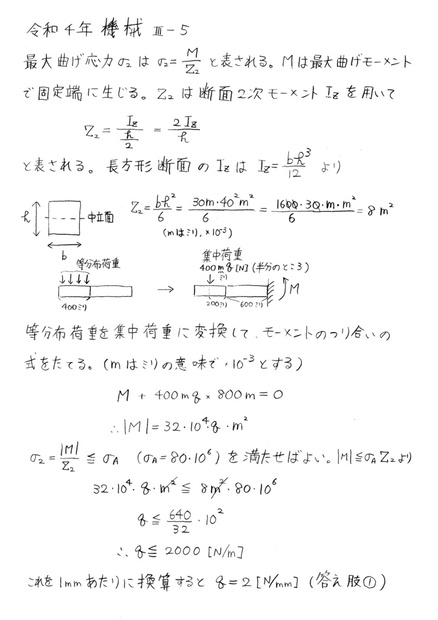 令和4年 機械 Ⅲ-5
最大曲げ応力σ₂は σ₂=M/Z₂ と表される。Mは最大曲げモーメント
で固定端に生じる。Z₂は断面2次モーメント I_Zを用いて
Z₂ = I_Z/(h/2) = 2I_Z/h
と表される。長方形断面のI_Zは I_Z=bh³/12 より
h 中立面 Z₂=bh²/6 = 30m・40²m²/6 = 1600・30・m・m²/6 = 8 m²
(mはミリ,×10⁻³)
b
等分布荷重 集中荷重
400m q [N] (半分のところ)
ミリ
→ M
400ミリ 200ミリ 600ミリ
等分布荷重を集中荷重に変換して、モーメントのつり合いの
式をたてる。(mはミリの意味で・10⁻³とする)
M + 400m q × 800m = 0
∴ |M| = 32・10⁴・q・m²
σ₂ = |M|/Z₂ ≦ σ_A (σ_A=80・10⁶) を満たせばよい。|M|≦σ_A Z₂より
32・10⁴・q・m² ≦ 8m²・80・10⁶
q ≦ 640/32・10²
∴ q ≦ 2000 [N/m]
これを1mmあたりに換算すると q=2 [N/mm] (答え肢①)